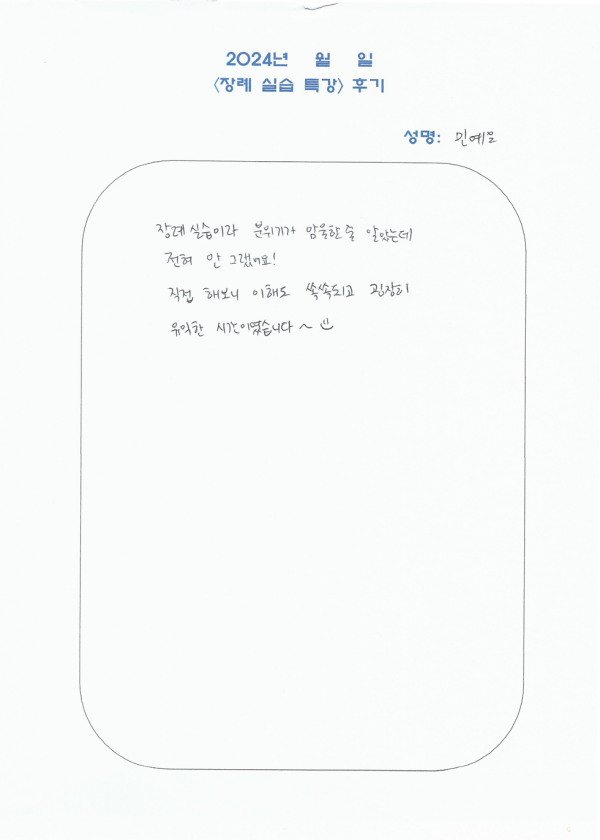 2024년 월 일
<장례 실습 특강> 후기
성명: 민예은
장례 실습이라 분위기가 암울한 줄 알았는데
전혀 안 그랬어요!
직접 해보니 이해도 쏙쏙되고 굉장히
유익한 시간이였습니다 ~